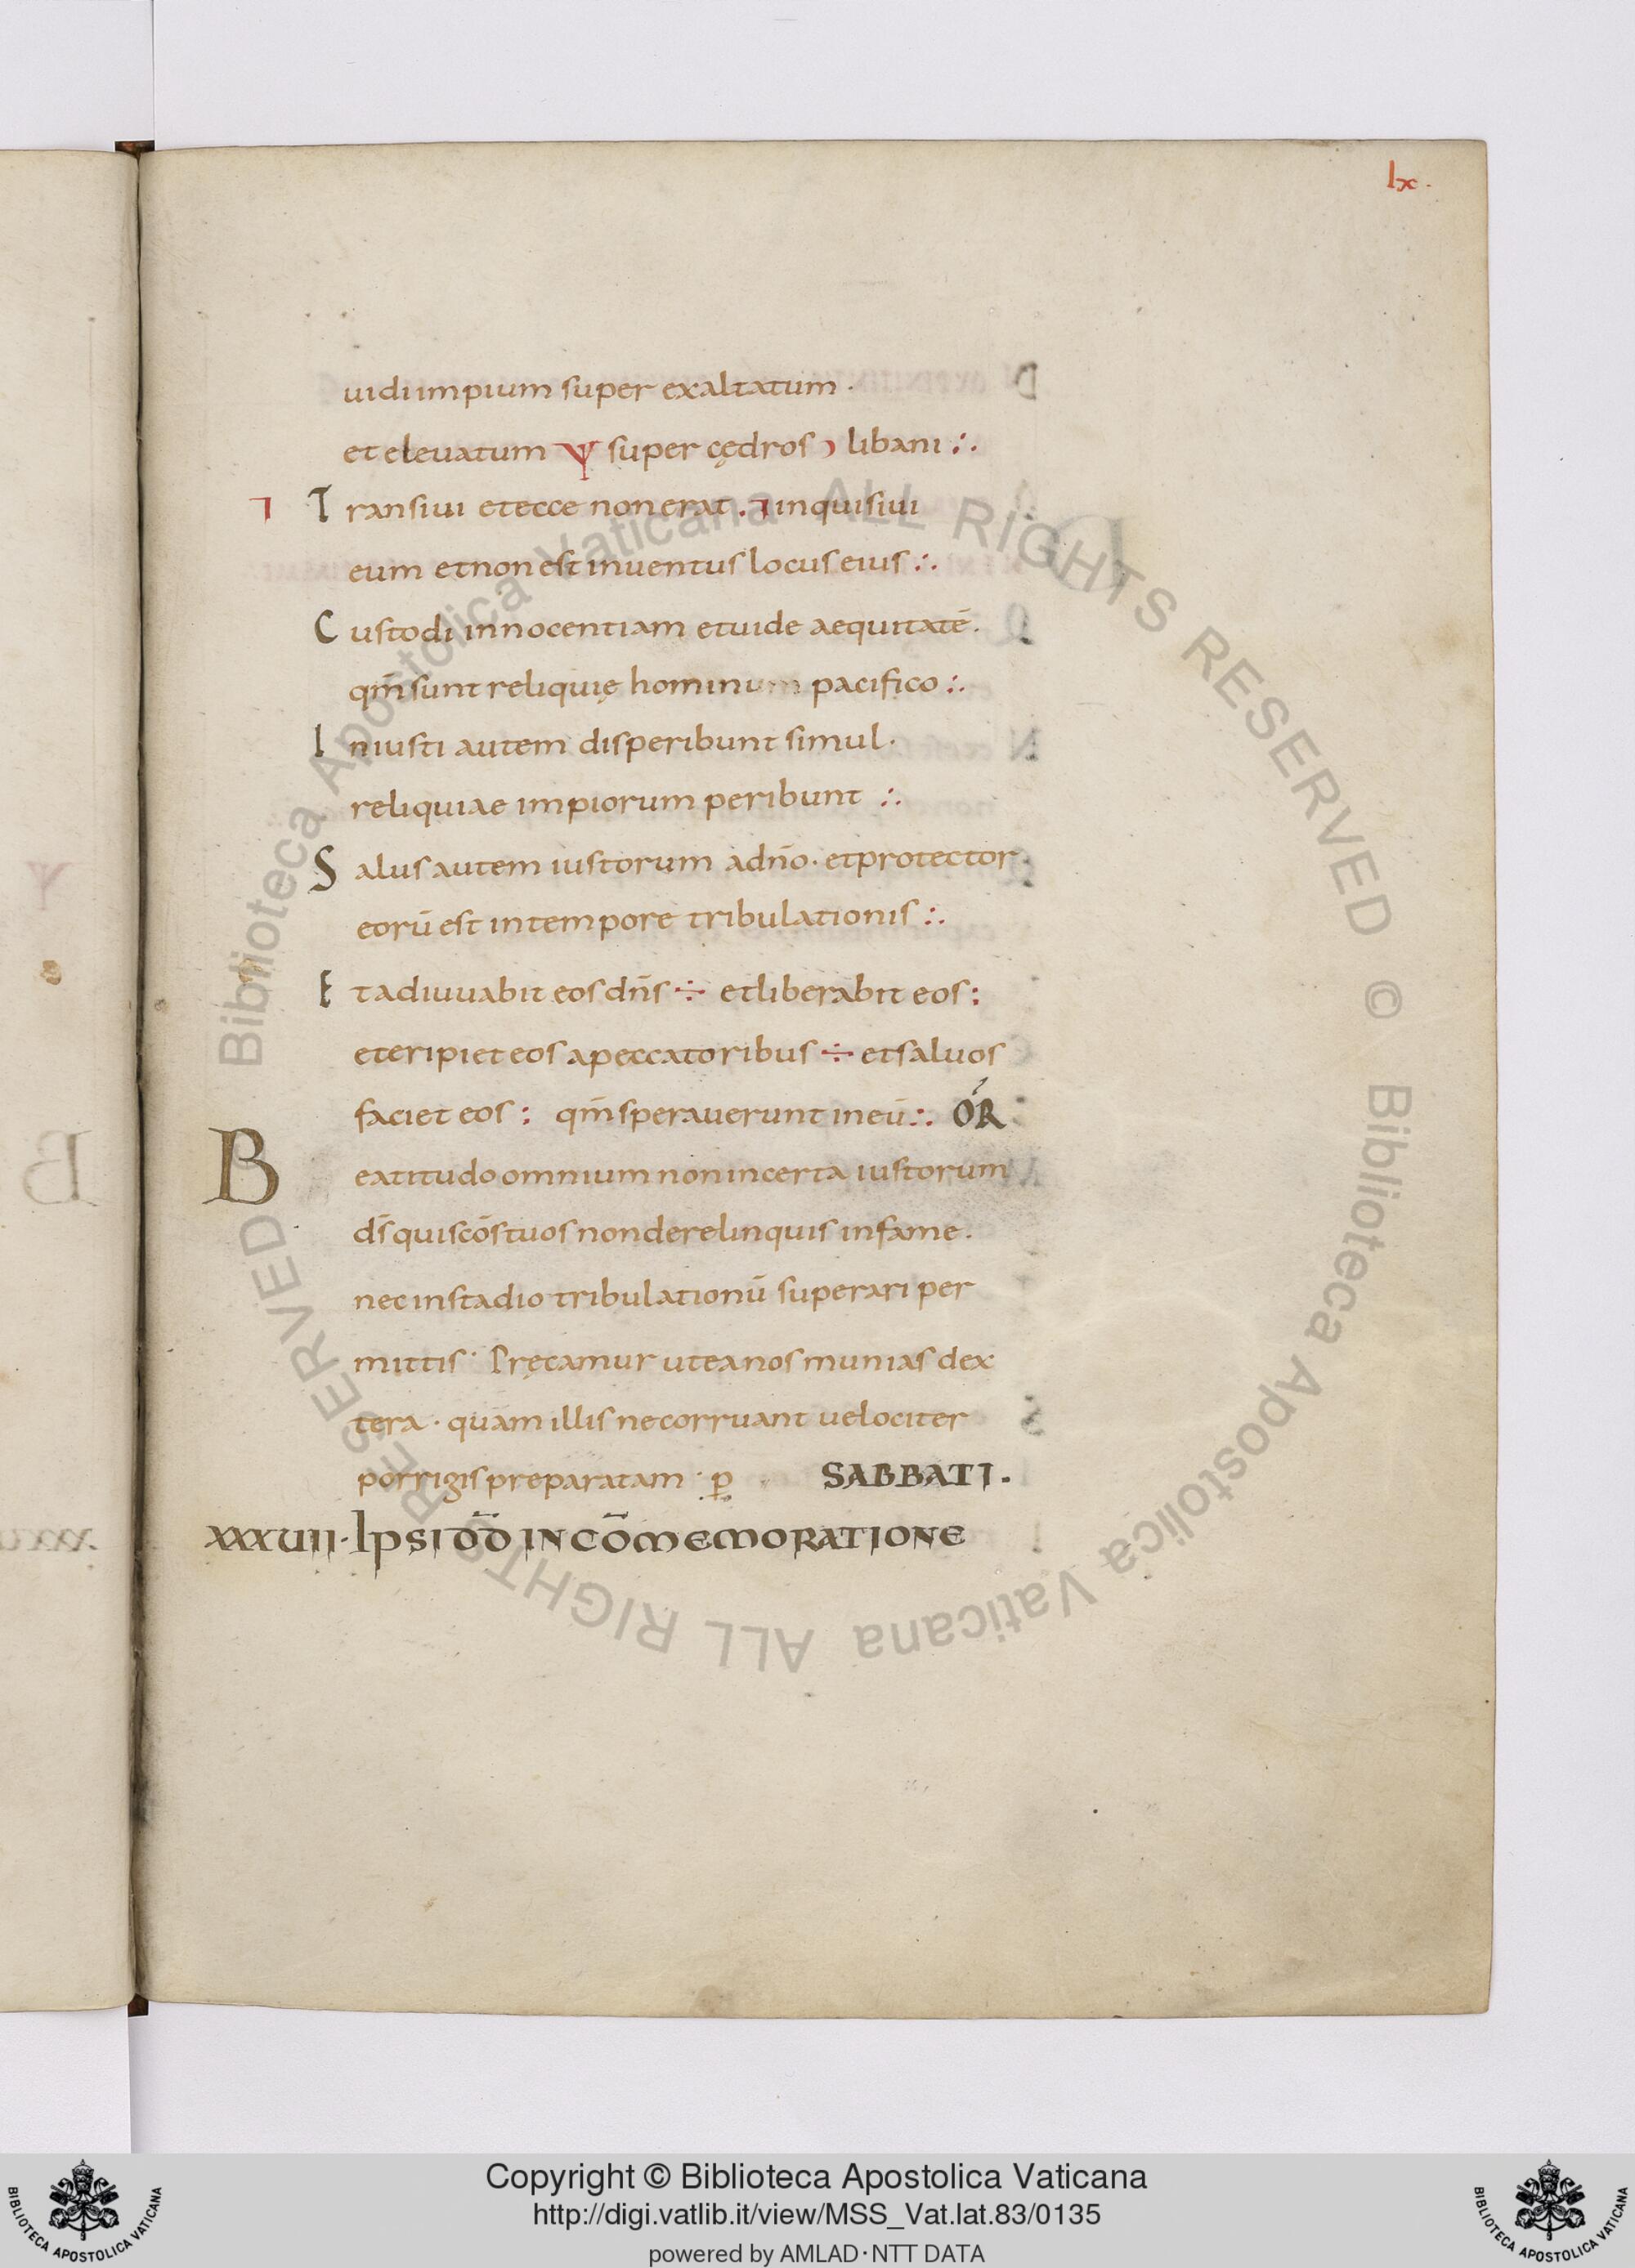 lx.
uidi impium super exaltatum ·
et eleuatum Ψ super cędros libani :·
Transiui et ecce non erat . inquisiui
eum et non est inuentus locus eius :·
Custodi innocentiam et uide aequitatē .
qm̄ sunt reliquię hominum pacifico :·
Iniusti autem disperibunt simul ·
reliquiae impiorum peribunt :·
Salus autem iustorum a dn̄o · et protector
eorū est in tempore tribulationis :·
Et adiuuabit eos dn̄s ÷ et liberabit eos :
et eripiet eos a peccatoribus ÷ et saluos
faciet eos : qm̄ sperauerunt in eū :· OR
Beatitudo omnium non incerta iustorum
ds̄ qui scōs tuos non derelinquis in fame .
nec in stadio tribulationū superari per
mittis · Pręcamur ut ea nos munias dex
tera · quam illis ne corruant uelociter
porrigis preparatam · p SABBATI .
XXXUII · IPSI DD̄ IN CŌMEMORATIONE
Biblioteca Apostolica Vaticana ALL RIGHTS RESERVED © Biblioteca Apostolica Vaticana ALL RIGHTS RESERVED
Copyright © Biblioteca Apostolica Vaticana
http://digi.vatlib.it/view/MSS_Vat.lat.83/0135
powered by AMLAD·NTT DATA
BIBLIOTECA APOSTOLICA VATICANA
BIBLIOTECA APOSTOLICA VATICANA